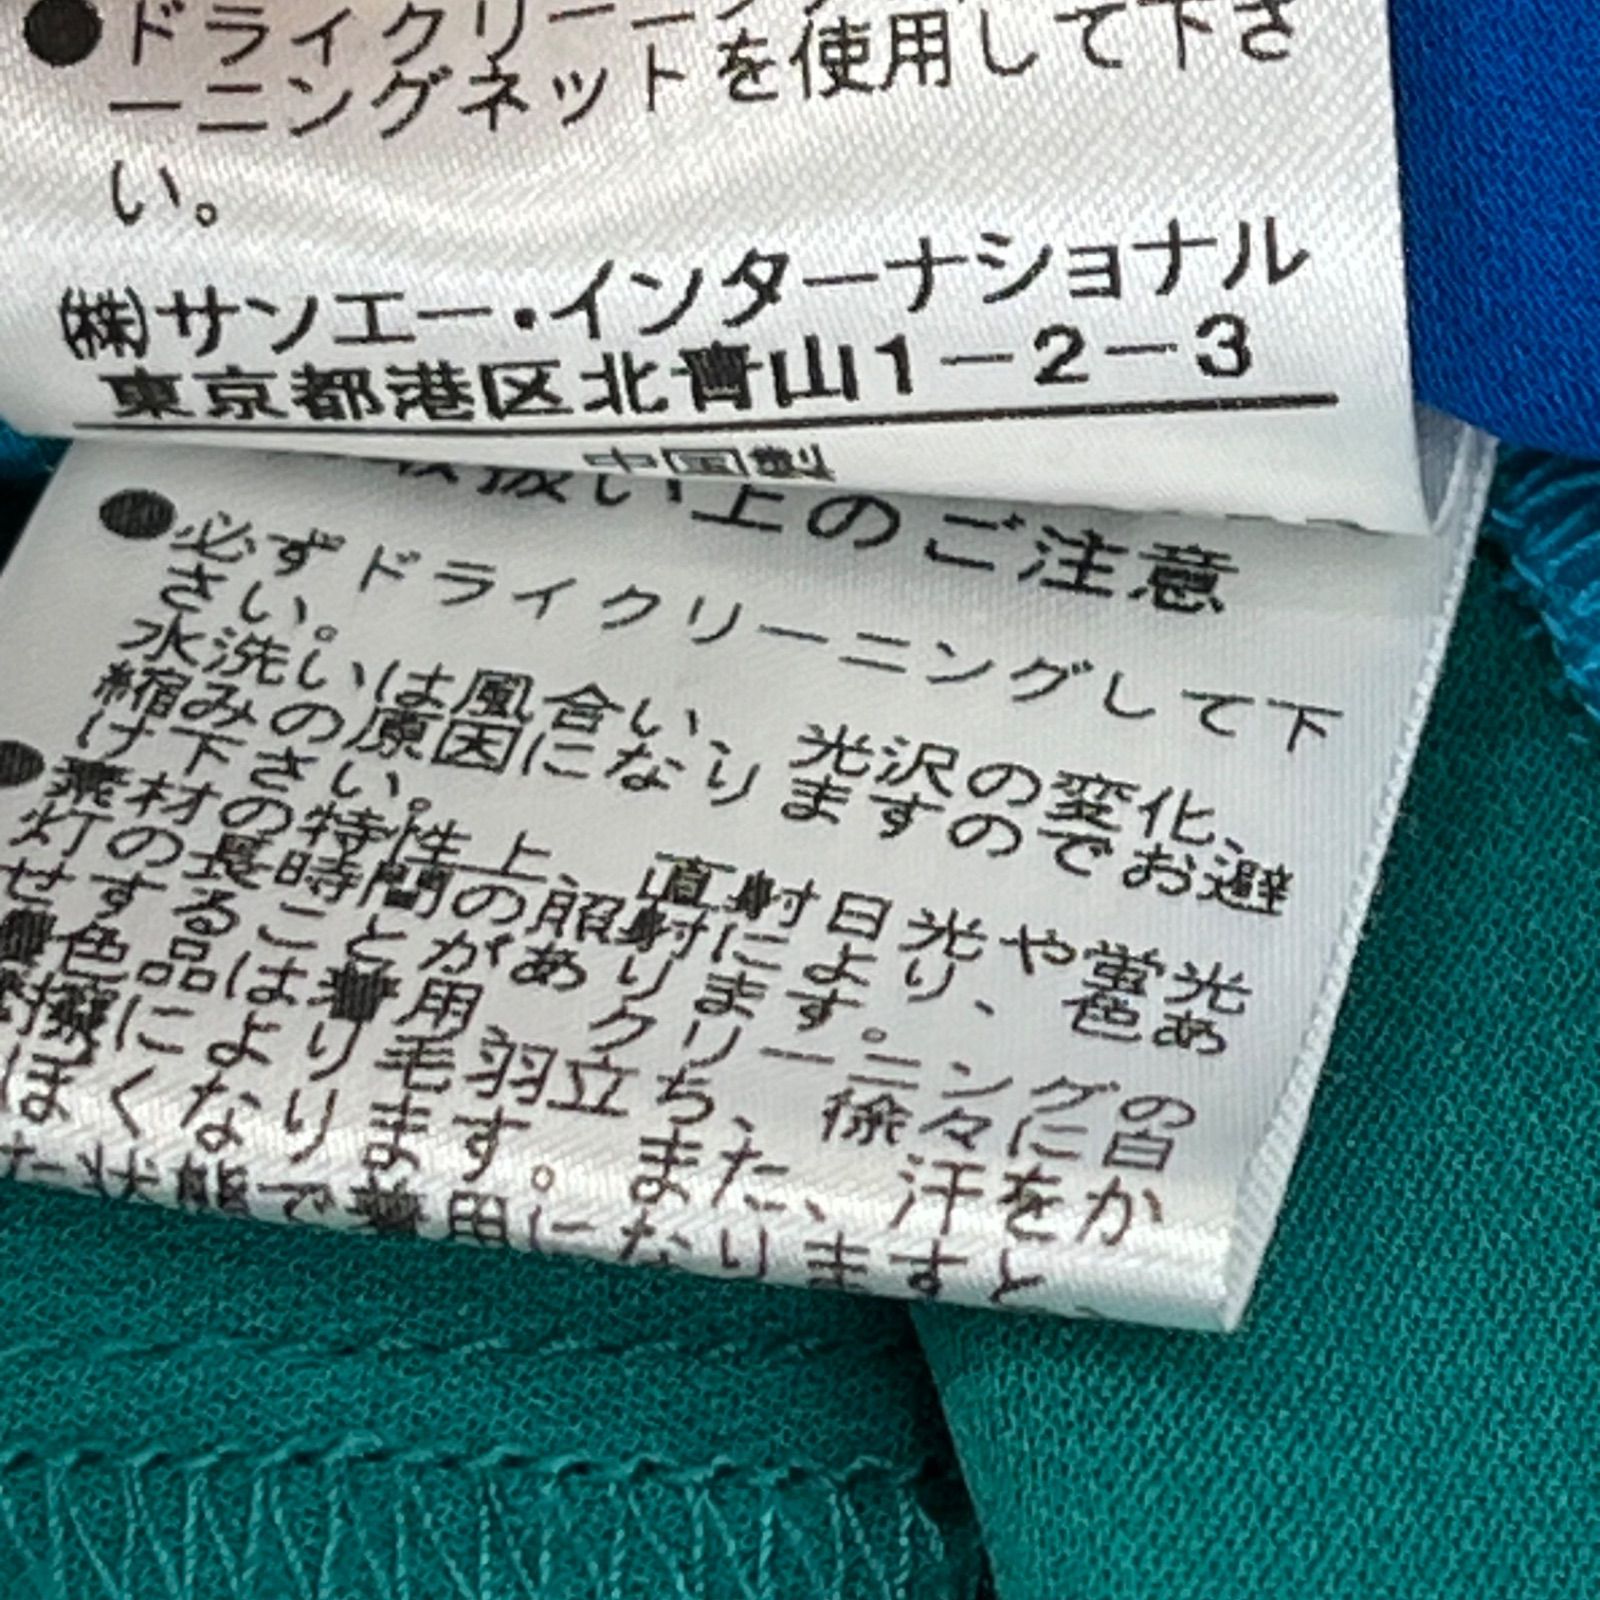 ●ドライクリーニング
ーニングネットを使用して下さ
い。
㈱サンエー・インターナショナル
東京都港区北青山1−2−3
中国製
取扱い上のご注意
●必ずドライクリーニングして下
さい。
水洗いは風合い、光沢の変化、
縮みの原因になりますのでお避
け下さい。
●素材の特性上、直射日光や蛍光
灯の長時間の照射により、色あ
せすることがあります。
色品は着用、クリーニングの
摩擦により毛羽立ち、徐々に白
ぽくなります。また、汗をか
た状態で着用になりますと、